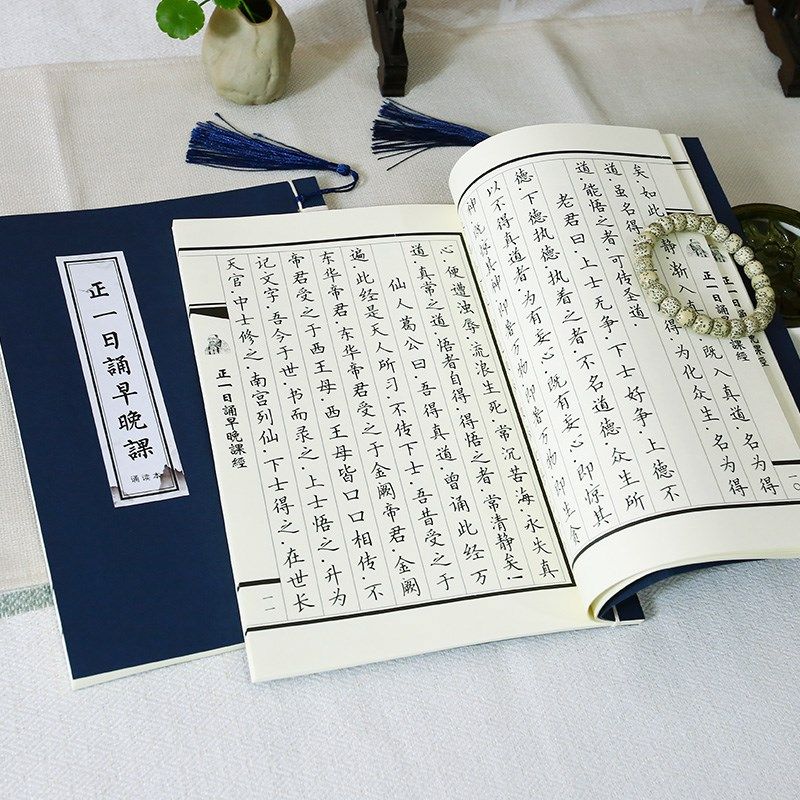 正一日誦早晚課
诵读本
正一日誦早晚課經
一〇
矣·如此 静·渐入真道·既入真道·名为得
道·虽名得 得·为化众生·名为得
道·能悟之者·可传圣道·
老君曰·上士无争·下士好争·上德不
德·下德执德·执着之者·不名道德·众生所
以不得真道者·为有妄心·既有妄心·即惊其
神·既惊其神·即 万物· 万物·即生贪
心·便遭浊辱·流浪生死·常沉苦海·永失真
道·真常之道·悟者自得·得悟之者·常清静矣·
仙人葛公曰·吾得真道·曾诵此经万
遍·此经是天人所习·不传下士·吾昔受之于
东华帝君·东华帝君受之于金阙帝君·金阙
帝君受之于西王母·西王母皆口口相传·不
记文字·吾今于世·书而录之·上士悟之·升为
天官·中士修之·南宫列仙·下士得之·在世长
正一日誦早晚課經
一一